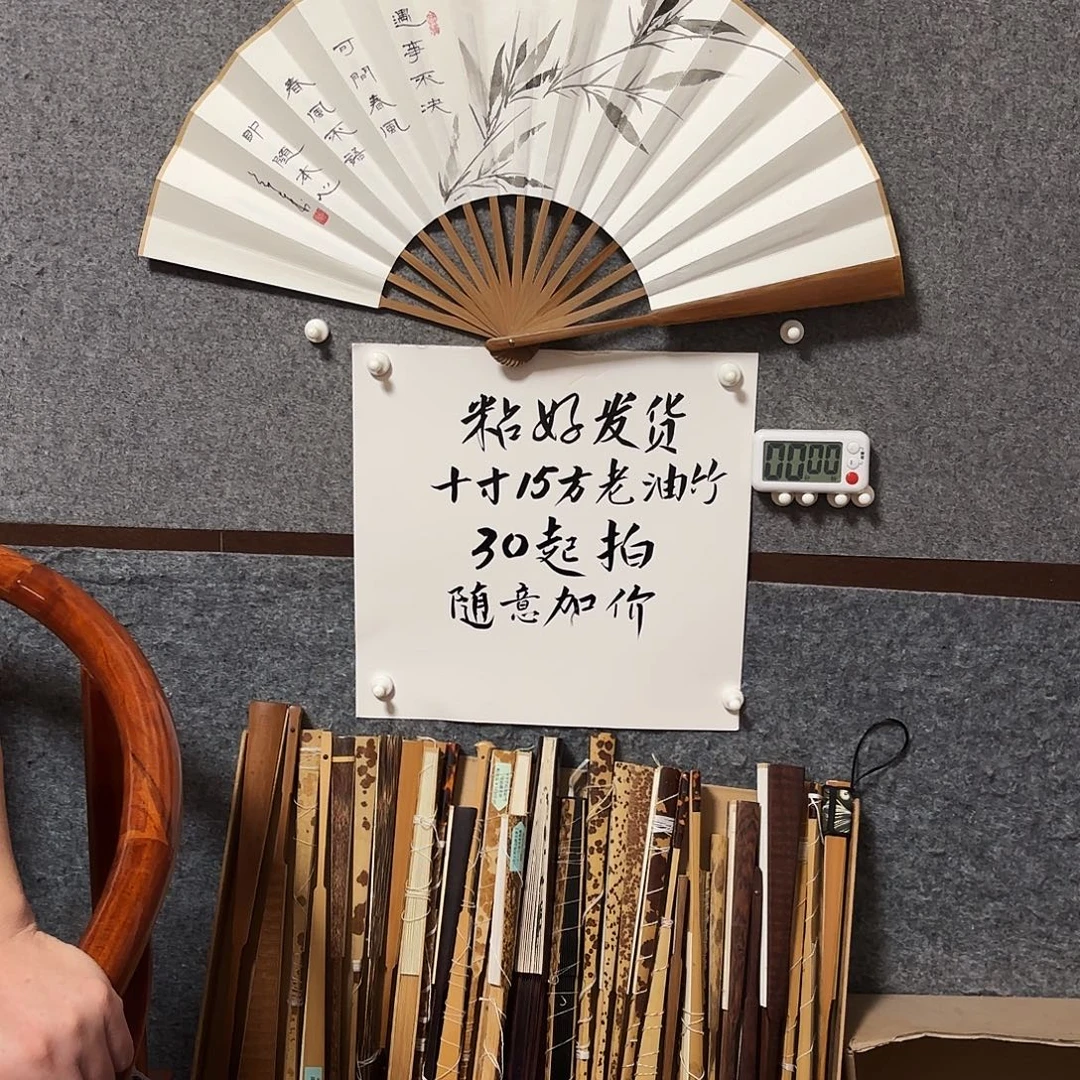 遇事不决
可问春风
春风不语
即随本心
粘好发货
十寸15方老油竹
30起拍
随意加价
00 00